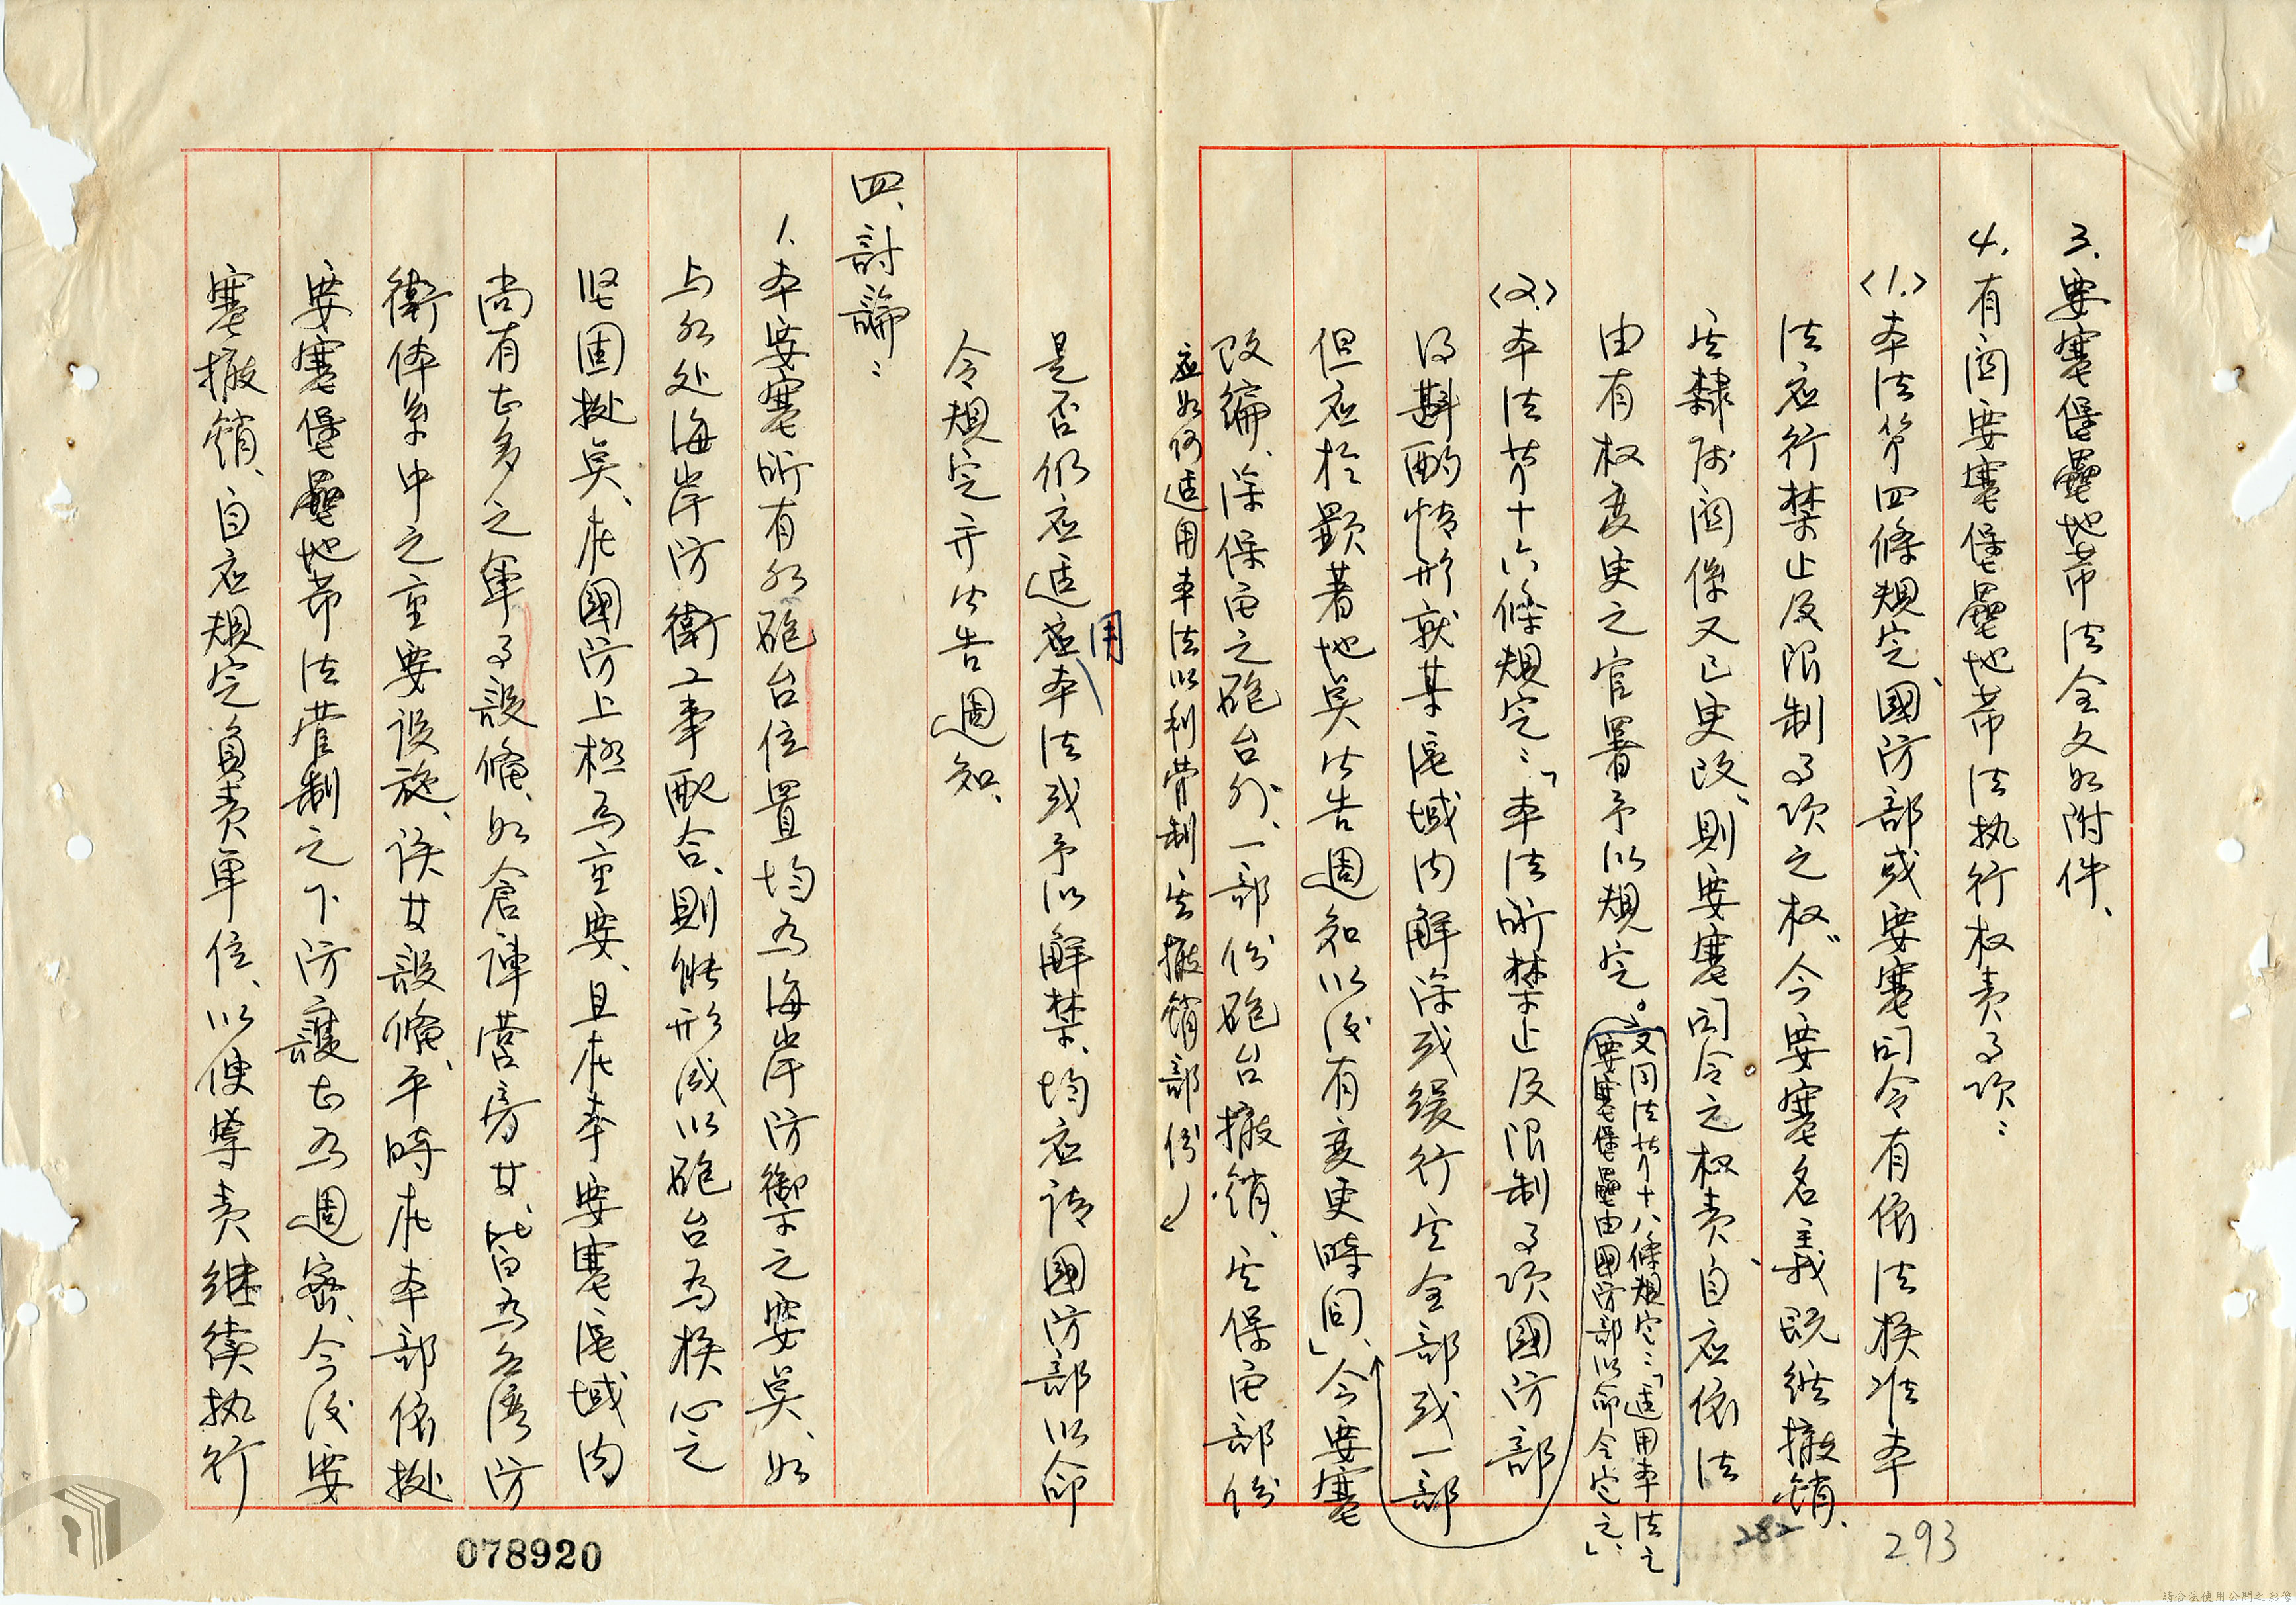 3. 要塞堡壘地帶法全文如附件、
4. 有関要塞堡壘地帶法执行权责事项：
〈1.〉本法第四條規定、國防部或要塞司令有依法核准本
法应行禁止及限制事项之权〞今要塞名義既经撤銷、
其隸屬関係又已更改、則要塞司令之权责、自应依法
由有权变更之官署予以規定。
又同法第十八條規定：「适用本法之
要塞堡壘由國防部以命令定之」、
〈2.〉本法第十六條規定：「本法所禁止及限制事项國防部
得斟酌情形就某區域内解除或緩行其全部或一部
但应於顯著地奌公告週知以後有变更時同」、今要塞
改編、除保留之砲台外、一部份砲台撤銷、其保留部份
应如何适用本法以利管制其撤銷部份
是否仍应适用本法或予以解禁、均应請國防部以命
令規定并公告週知、
四、討論：
1. 本要塞所有如砲台位置均为海岸防禦之要奌、如
与如处海岸防衛工事配合、則能形成以砲台為核心之
坚固㨿奌、在國防上極为重要、且在本要塞區域内
尚有甚多之軍事設備、如倉庫營房廿、皆为台灣防
衛体系中之重要设施、该廿設備、平時在本部依㨿
要塞堡壘地帶法管制之下防護甚为週密、今後要
塞撤銷、自应規定負责單位、以便専责継續执行
078920
282
293
請合法使用公開之影像